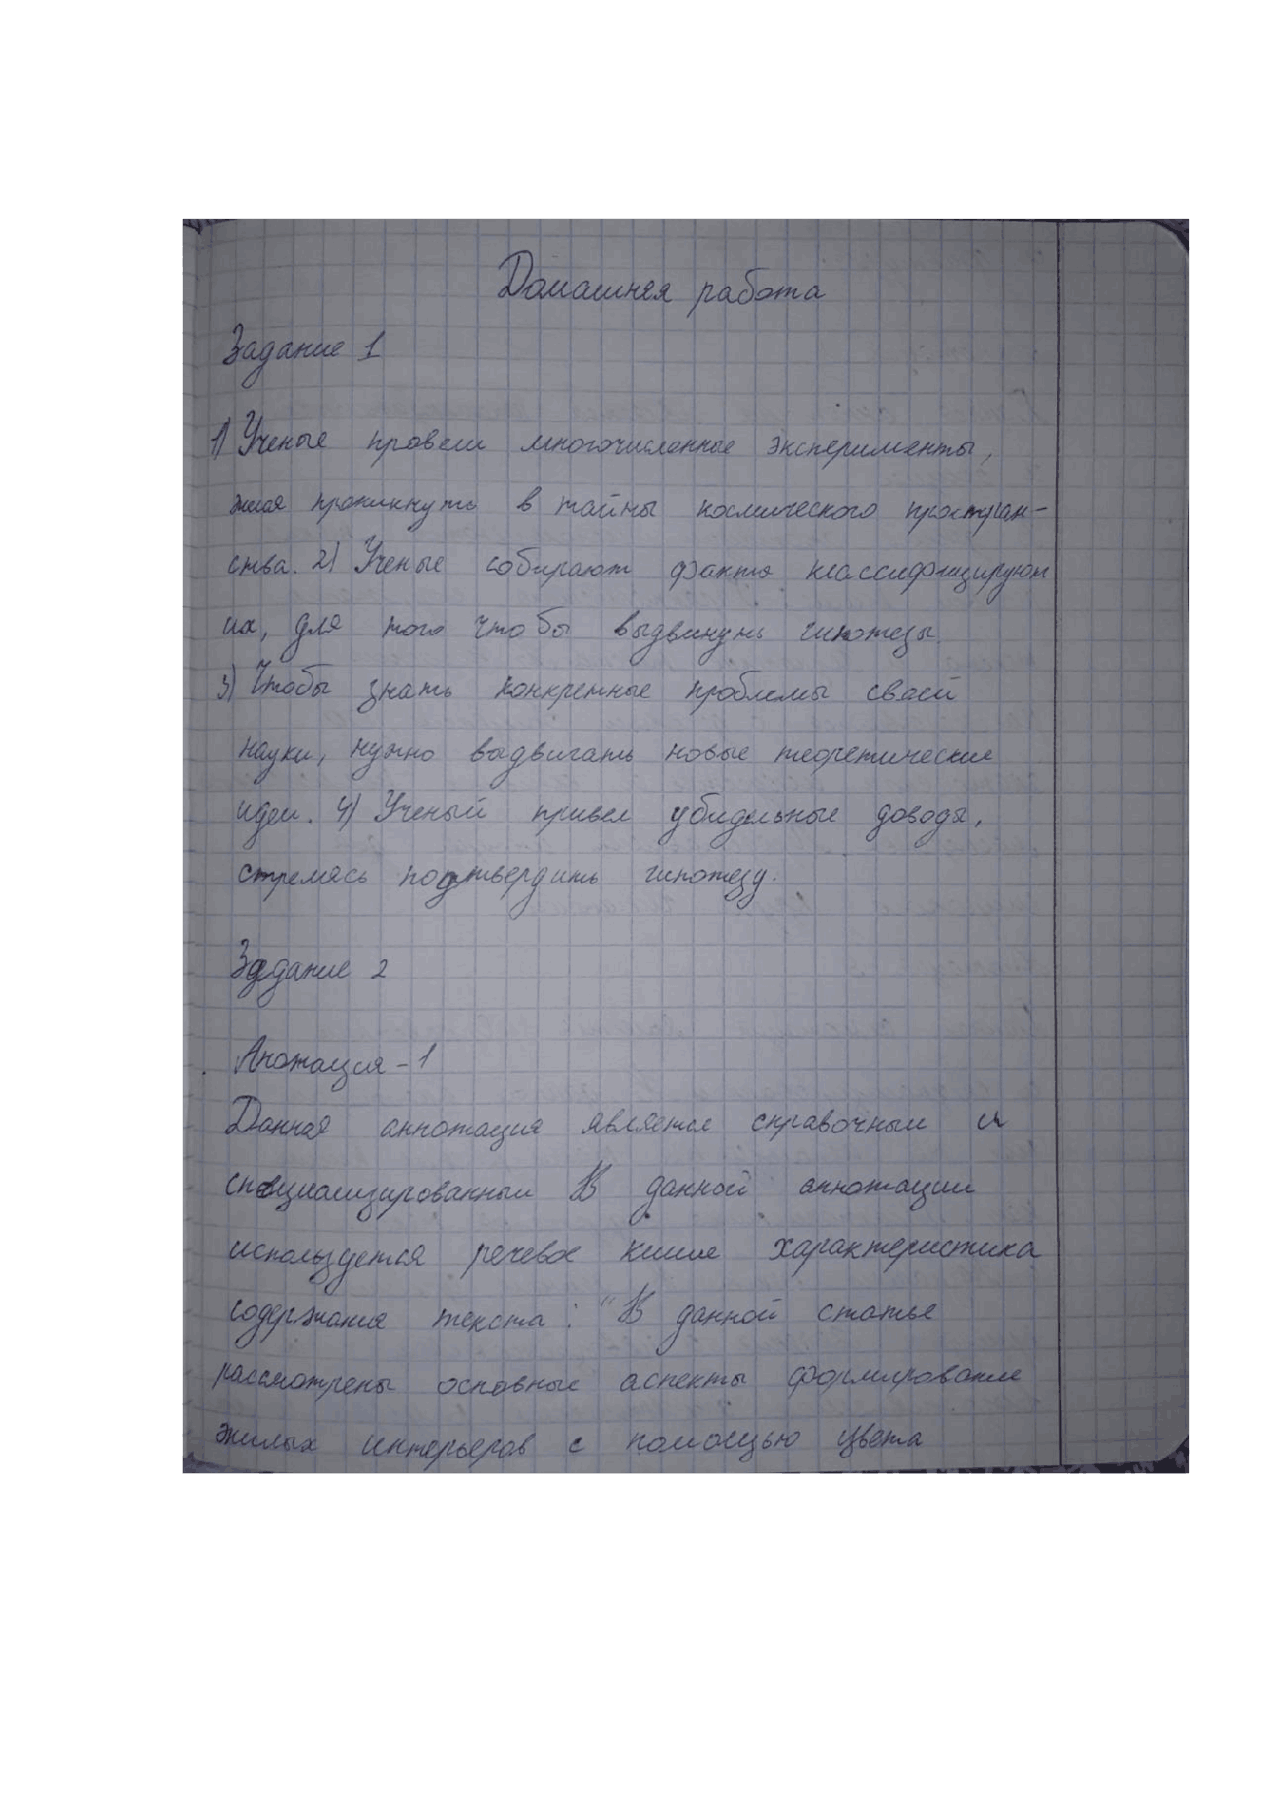 Домашняя работа
Задание 1
1) Ученые провели многочисленные эксперименты,
желая проникнуть в тайны космического простран-
ства. 2) Ученые собирают факты классифицируют
их, для того чтобы выдвинуть гипотезы.
3) Чтобы знать конкретные проблемы своей
науки, нужно выдвигать новые теоретические
идеи. 4) Ученый привел убидельные доводы,
стремясь подтвердить гипотезу.
Задание 2
Анотация - 1
Данная аннотация является справочным и
специализированным В данной аннотации
используется речевое клише характеристика
содержания текста: "В данной статье
рассмотрены основные аспекты формирование
жилых интерьеров с помощью цвета